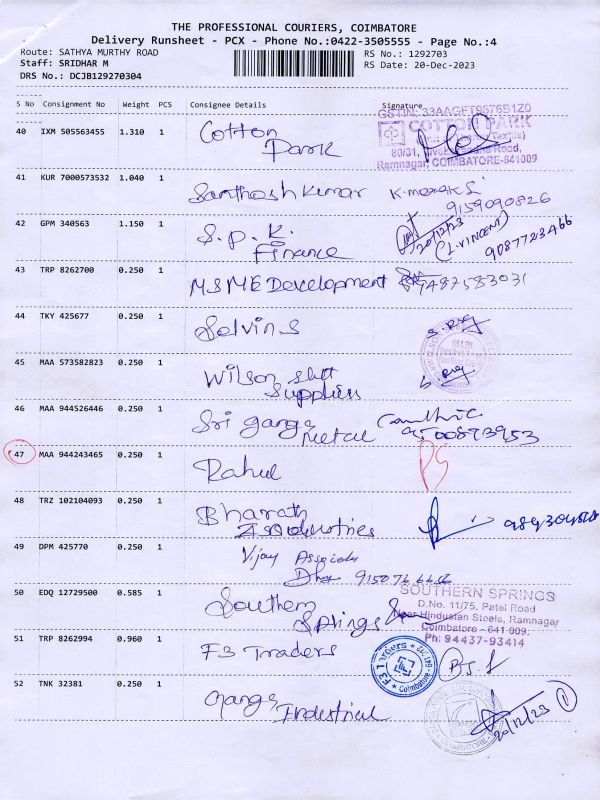 THE PROFESSIONAL COURIERS, COIMBATORE
Delivery Runsheet - PCX - Phone No.:0422-3505555 - Page No.:4
Route: SATHYA MURTHY ROAD RS No.: 1292703
Staff: SRIDHAR M RS Date: 20-Dec-2023
DRS No.: DCJB129270304
S No Consignment No Weight PCS Consignee Details Signature
GSTIN: 33AAGFT9676B1Z0
40 IXM 505563455 1.310 1 Cotton Park
COTTON PARK
80/31, Road,
Ramnagar, COIMBATORE-641009
41 KUR 7000573532 1.040 1 Santhosh Kumar
9159090826
42 GPM 340563 1.150 1 S.P.K. Finance
20/12/23
(L.VINCENT)
9087723466
43 TRP 8262700 0.250 1 MSME Development 9487583031
44 TKY 425677 0.250 1 Selvin S
45 MAA 573582823 0.250 1 Wilson Suppliers
46 MAA 944526446 0.250 1 Sri Ganga Metal
9500873953
47 MAA 944243465 0.250 1 Rahul
48 TRZ 102104093 0.250 1 Bharath Industries
49 DPM 425770 0.250 1 Vijay
50 EDQ 12729500 0.585 1 Southern Springs
SOUTHERN SPRINGS
D.No. 11/75, Patel Road
Near Hindustan Steels, Ramnagar
Coimbatore - 641 009.
Ph: 94437-93414
51 TRP 8262994 0.960 1 F3 Traders
F3 Traders
Coimbatore
52 TNK 32381 0.250 1 Ganga Industrial
20/12/23 1
COIMBATORE